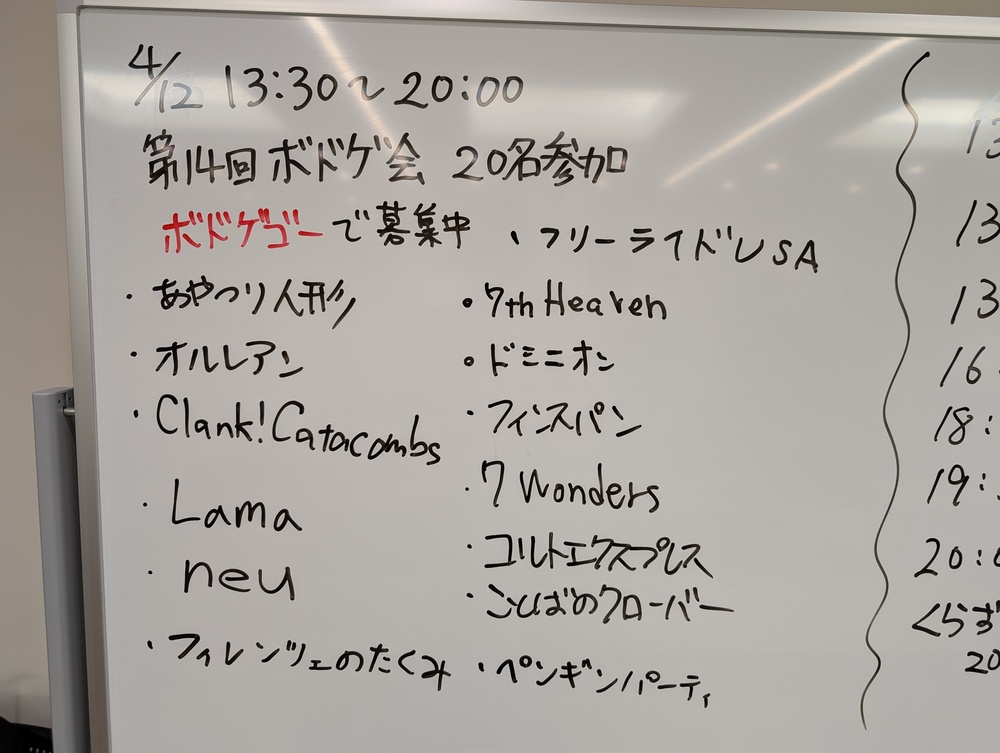 4/12 13:30～20:00
第14回ボドゲ会 20名参加
ボドゲゴーで募集中
・フリーライドUSA
・あやつり人形
・オルレアン
・Clank!Catacombs
・Lama
・neu
・フィレンツェのたくみ
・7th Heaven
・ドミニオン
・フィンスパン
・7 Wonders
・コルトエクスプレス
・ことばのクローバー
・ペンギンパーティ
13
13
13
16
18:
19:
20:0
くらず
20